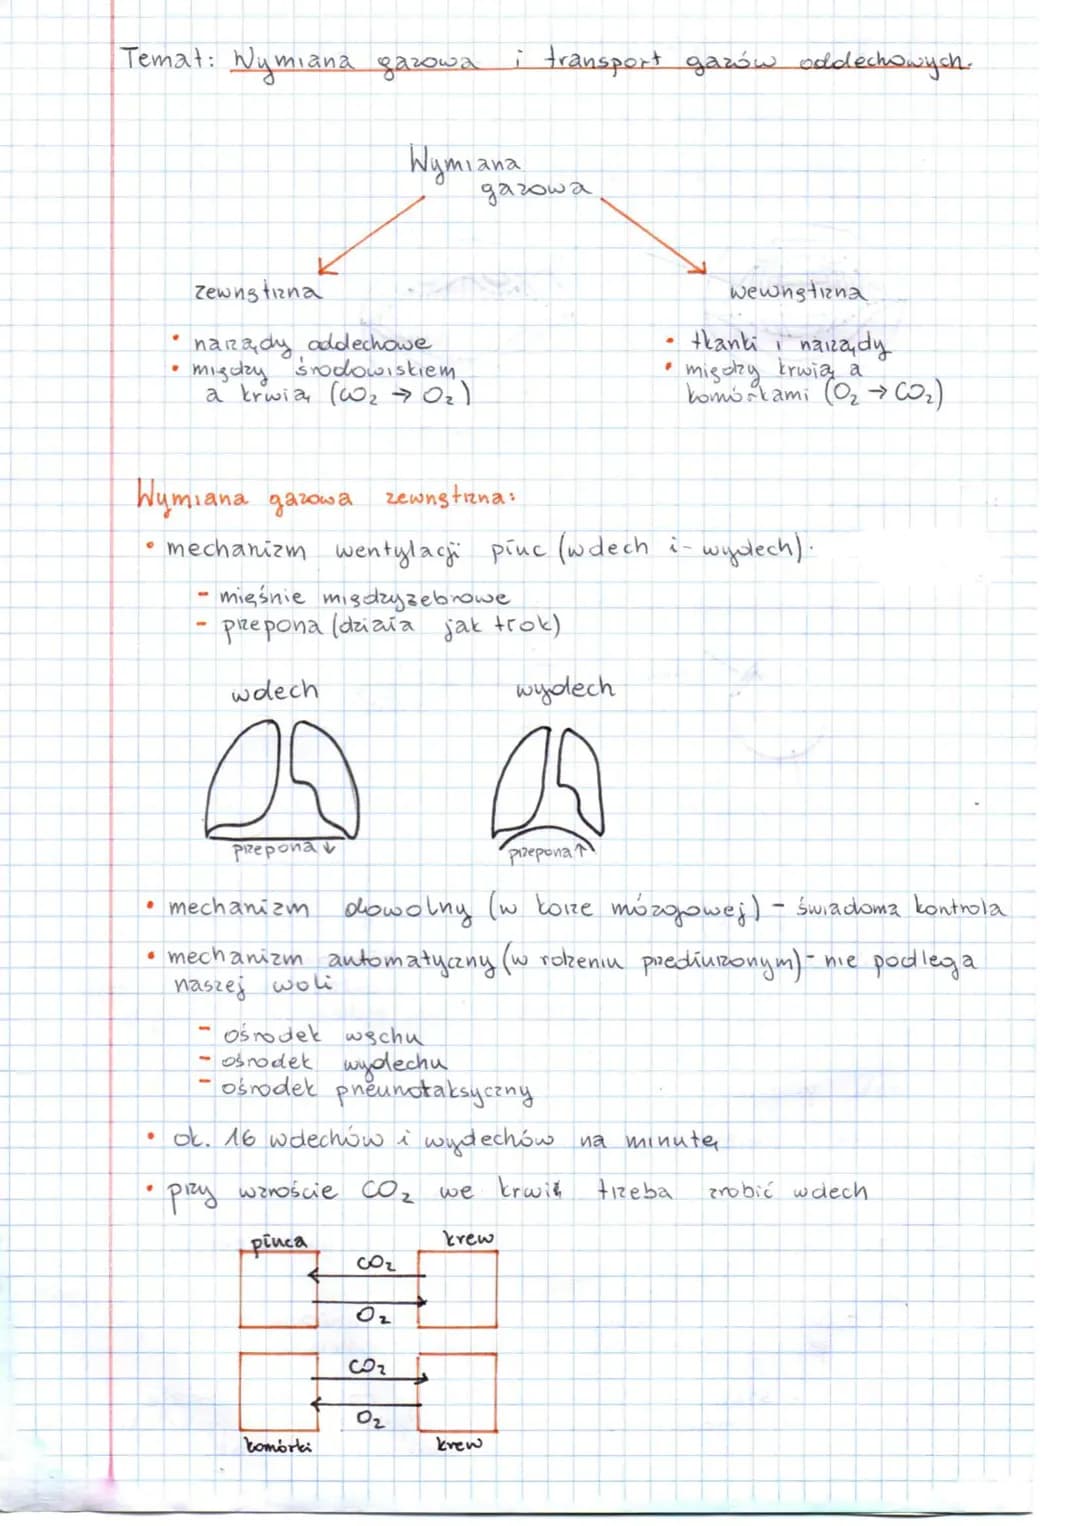 Temat: Wymiana gazowa i transport gazów oddechowych.
Wymiana
gazowa
zewnętrzna
• narządy oddechowe
• między środowiskiem
a krwią (CO₂ → O₂)
wewnętrzna
• tkanki i narządy
• między krwią a
komórkami (O₂ → CO₂)
Wymiana gazowa zewnętrzna:
• mechanizm wentylacji płuc (wdech i wydech).
- mięśnie międzyżebrowe
- przepona (działa jak tłok)
wdech
wydech
przepona ↓
przepona ↑
• mechanizm dowolny (w korze mózgowej) - świadoma kontrola
• mechanizm automatyczny (w rdzeniu przedłużonym) - nie podlega
naszej woli
- ośrodek węchu
- ośrodek wydechu
- ośrodek pneumotaksyczny
• ok. 16 wdechów i wydechów na minutę
• przy wzroście CO₂ we krwi trzeba zrobić wdech
płuca
krew
CO₂
O₂
CO₂
O₂
komórki
krew